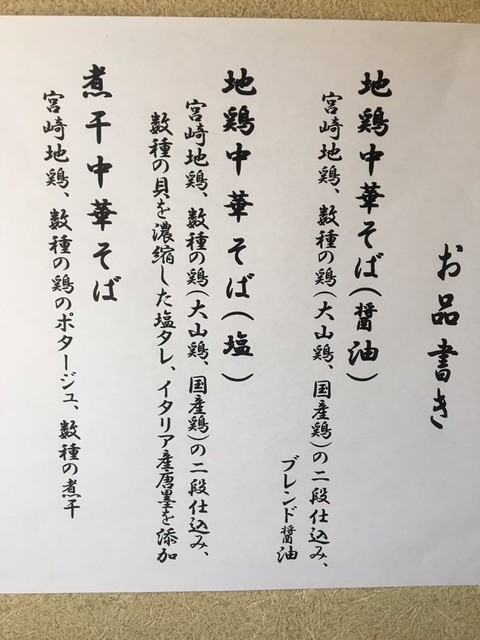 お品書き
地鶏中華そば(醤油)
宮崎地鶏、数種の鶏(大山鶏、国産鶏)の二段仕込み、
ブレンド醤油
地鶏中華そば(塩)
宮崎地鶏、数種の鶏(大山鶏、国産鶏)の二段仕込み、
数種の貝を濃縮した塩タレ、イタリア産唐墨を添加
煮干中華そば
宮崎地鶏、数種の鶏のポタージュ、数種の煮干